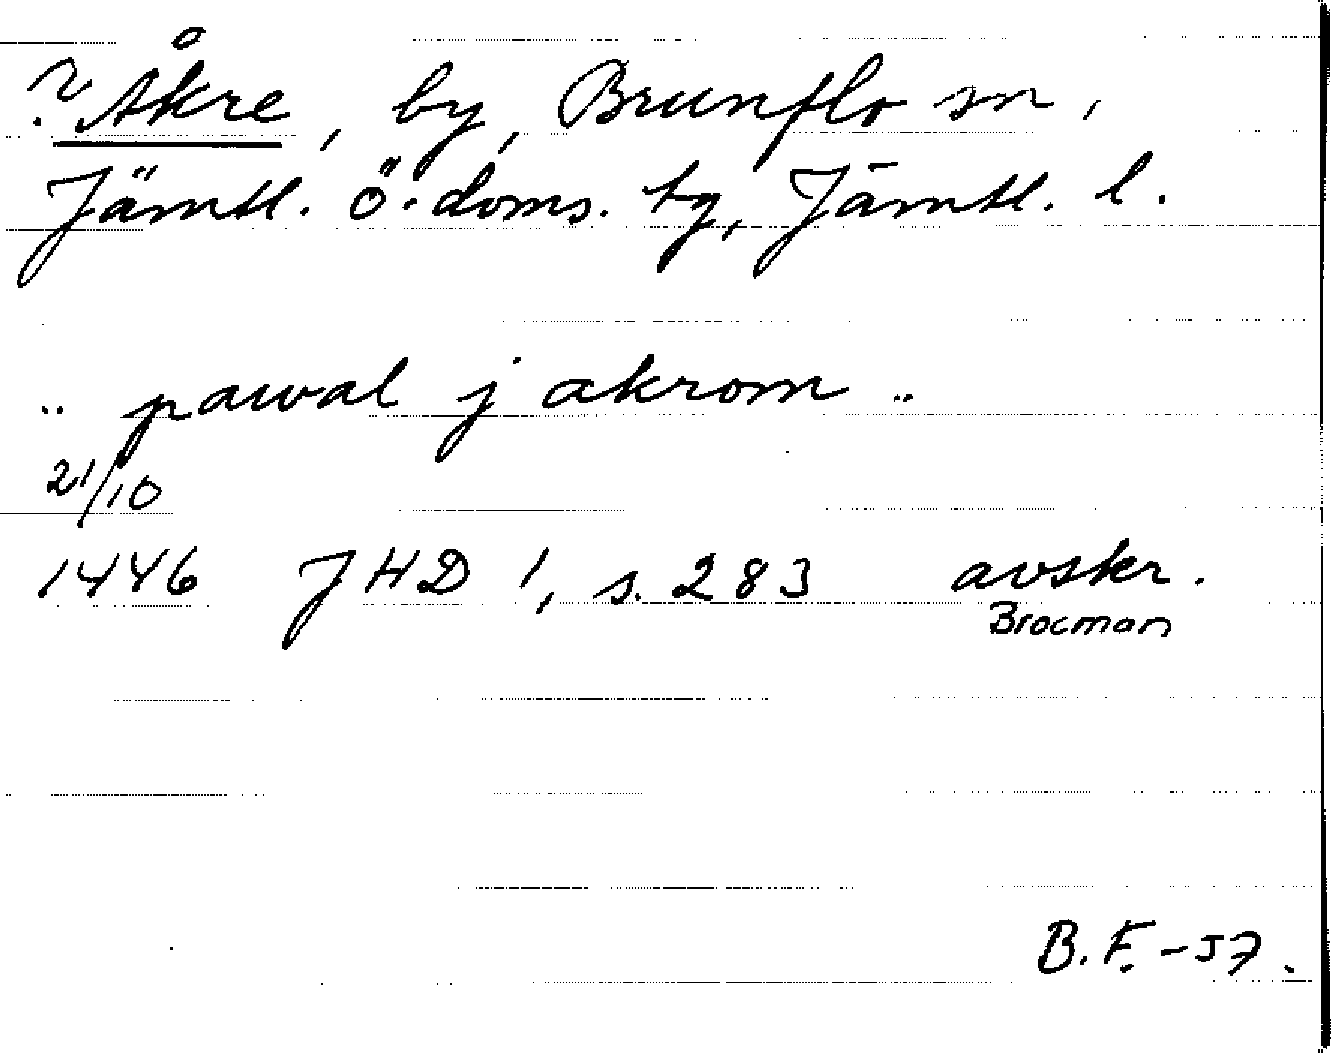 ? Åkre, by, Brunflo sn,
Jämtl. ö. doms. tg, Jämtl. l.
.. pawal j akrom ..
21/10
1446 JHD 1, s. 283 avskr.
Brocman
B.F. -57.